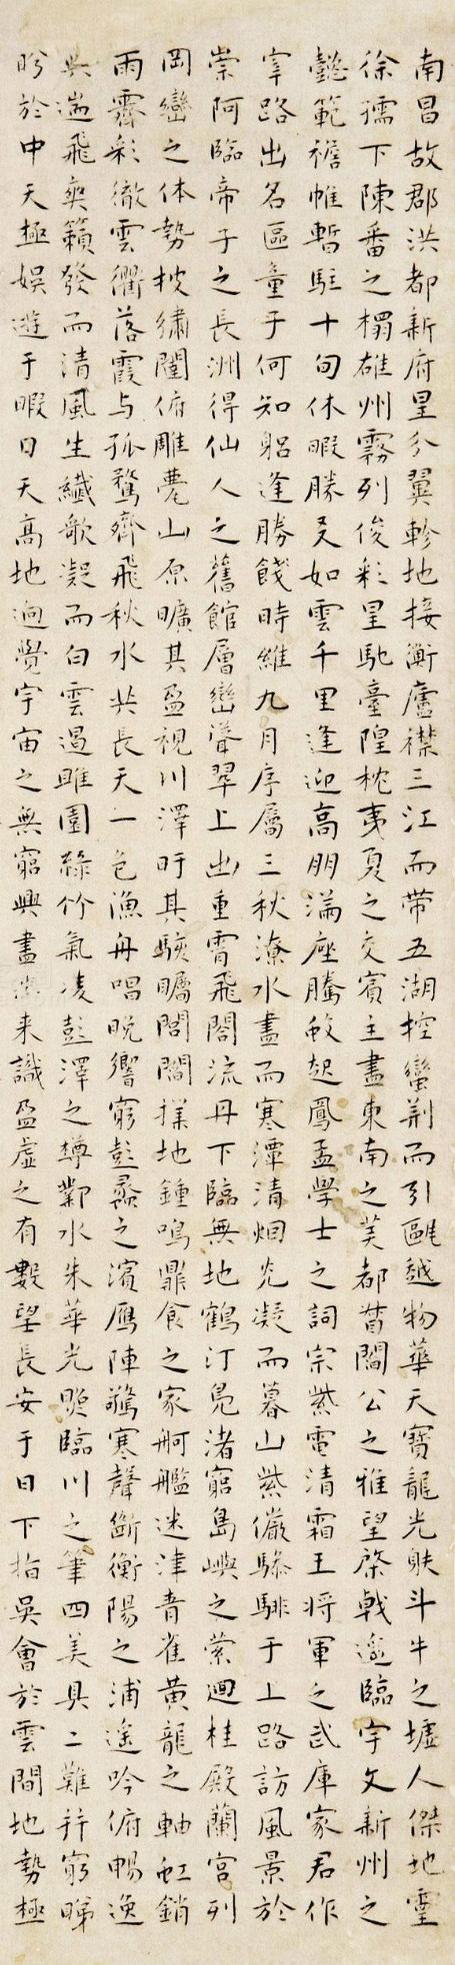 南昌故郡洪都新府星分翼軫地接衡廬襟三江而帶五湖控蠻荆而引甌越物華天寶龍光射斗牛之墟人傑地靈
徐孺下陳蕃之榻雄州霧列俊彩星馳臺隍枕夷夏之交賓主盡東南之美都督閻公之雅望棨戟遥臨宇文新州之
懿範襜帷暫駐十旬休暇勝友如雲千里逢迎高朋滿座騰蛟起鳳孟學士之詞宗紫電清霜王將軍之武庫家君作
宰路出名區童子何知躬逢勝餞時維九月序屬三秋潦水盡而寒潭清烟光凝而暮山紫儼驂騑于上路訪風景於
崇阿臨帝子之長洲得仙人之舊館層巒聳翠上出重霄飛閣流丹下臨無地鶴汀鳧渚窮島嶼之縈迴桂殿蘭宮列
岡巒之体勢披繡闥俯雕甍山原曠其盈視川澤盱其駭矚閭閻撲地鍾鳴鼎食之家舸艦迷津青雀黃龍之軸虹銷
雨霽彩徹雲衢落霞与孤鶩齊飛秋水共長天一色漁舟唱晚響窮彭蠡之濱鴈陣驚寒聲斷衡陽之浦遥吟俯暢逸
興遄飛爽籟發而清風生纖歌凝而白雲遏睢園綠竹氣凌彭澤之樽鄴水朱華光照臨川之筆四美具二難并窮睇
眄於中天極娛遊于暇日天高地迥覺宇宙之無窮興盡悲来識盈虛之有數望長安于日下指吳會於雲間地勢極